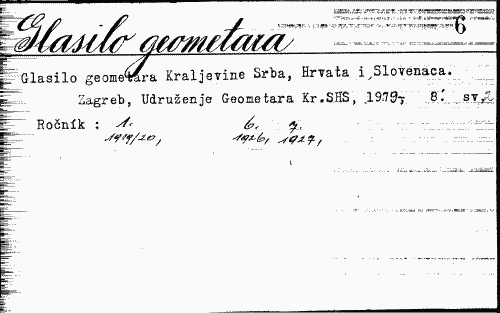 Glasilo geometara
6
Glasilo geometara Kraljevine Srba, Hrvata i Slovenaca.
Zagreb, Udruženje Geometara Kr.SHS, 1919, 8° sv.
Ročník : 1. 6. 7.
1919/20, 1926, 1927,